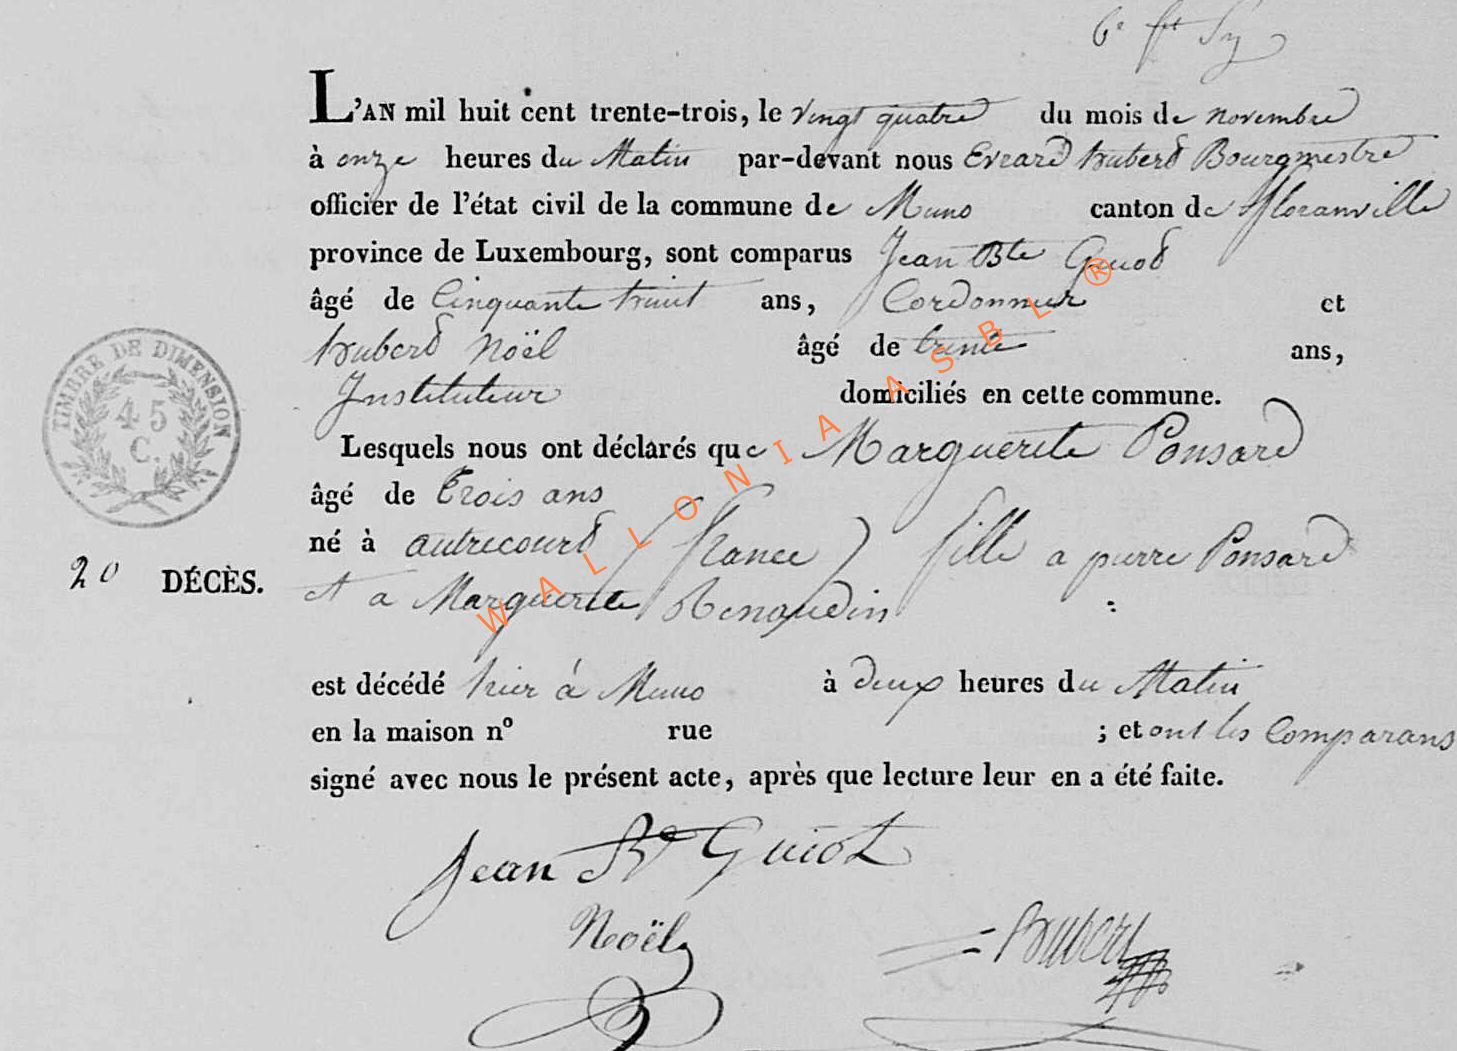 L'AN mil huit cent trente-trois, le vingt quatre du mois de novembre
à onze heures du Matin par-devant nous Evrard hubert Bourgmestre
officier de l'état civil de la commune de Muno canton de floranville
province de Luxembourg, sont comparus Jean Bte Guiot
âgé de Cinquante huit ans, Cordonnier et
hubert Noël âgé de trente ans,
Instituteur domiciliés en cette commune.
Lesquels nous ont déclarés que Marguerite Ponsard
âgé de trois ans
né à autrecourt (france) fille a pierre Ponsard
20 DÉCÈS. et a Marguerite Renaudin
est décédé hier à Muno à deux heures du Matin
en la maison nº rue ; et ont les Comparans
signé avec nous le présent acte, après que lecture leur en a été faite.
Jean Bte Guiot
Noël
hubert
TIMBRE DE DIMENSION
45
C.
WALLONIA ASBL ®